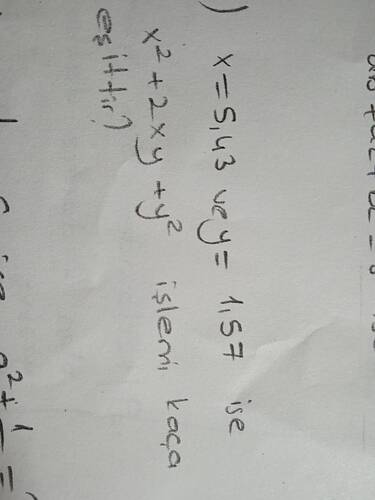 )
x=5,43 ve y= 1,57 ise
x² + 2xy +y² işlemi kaça
eşittir?
ise a² + 1